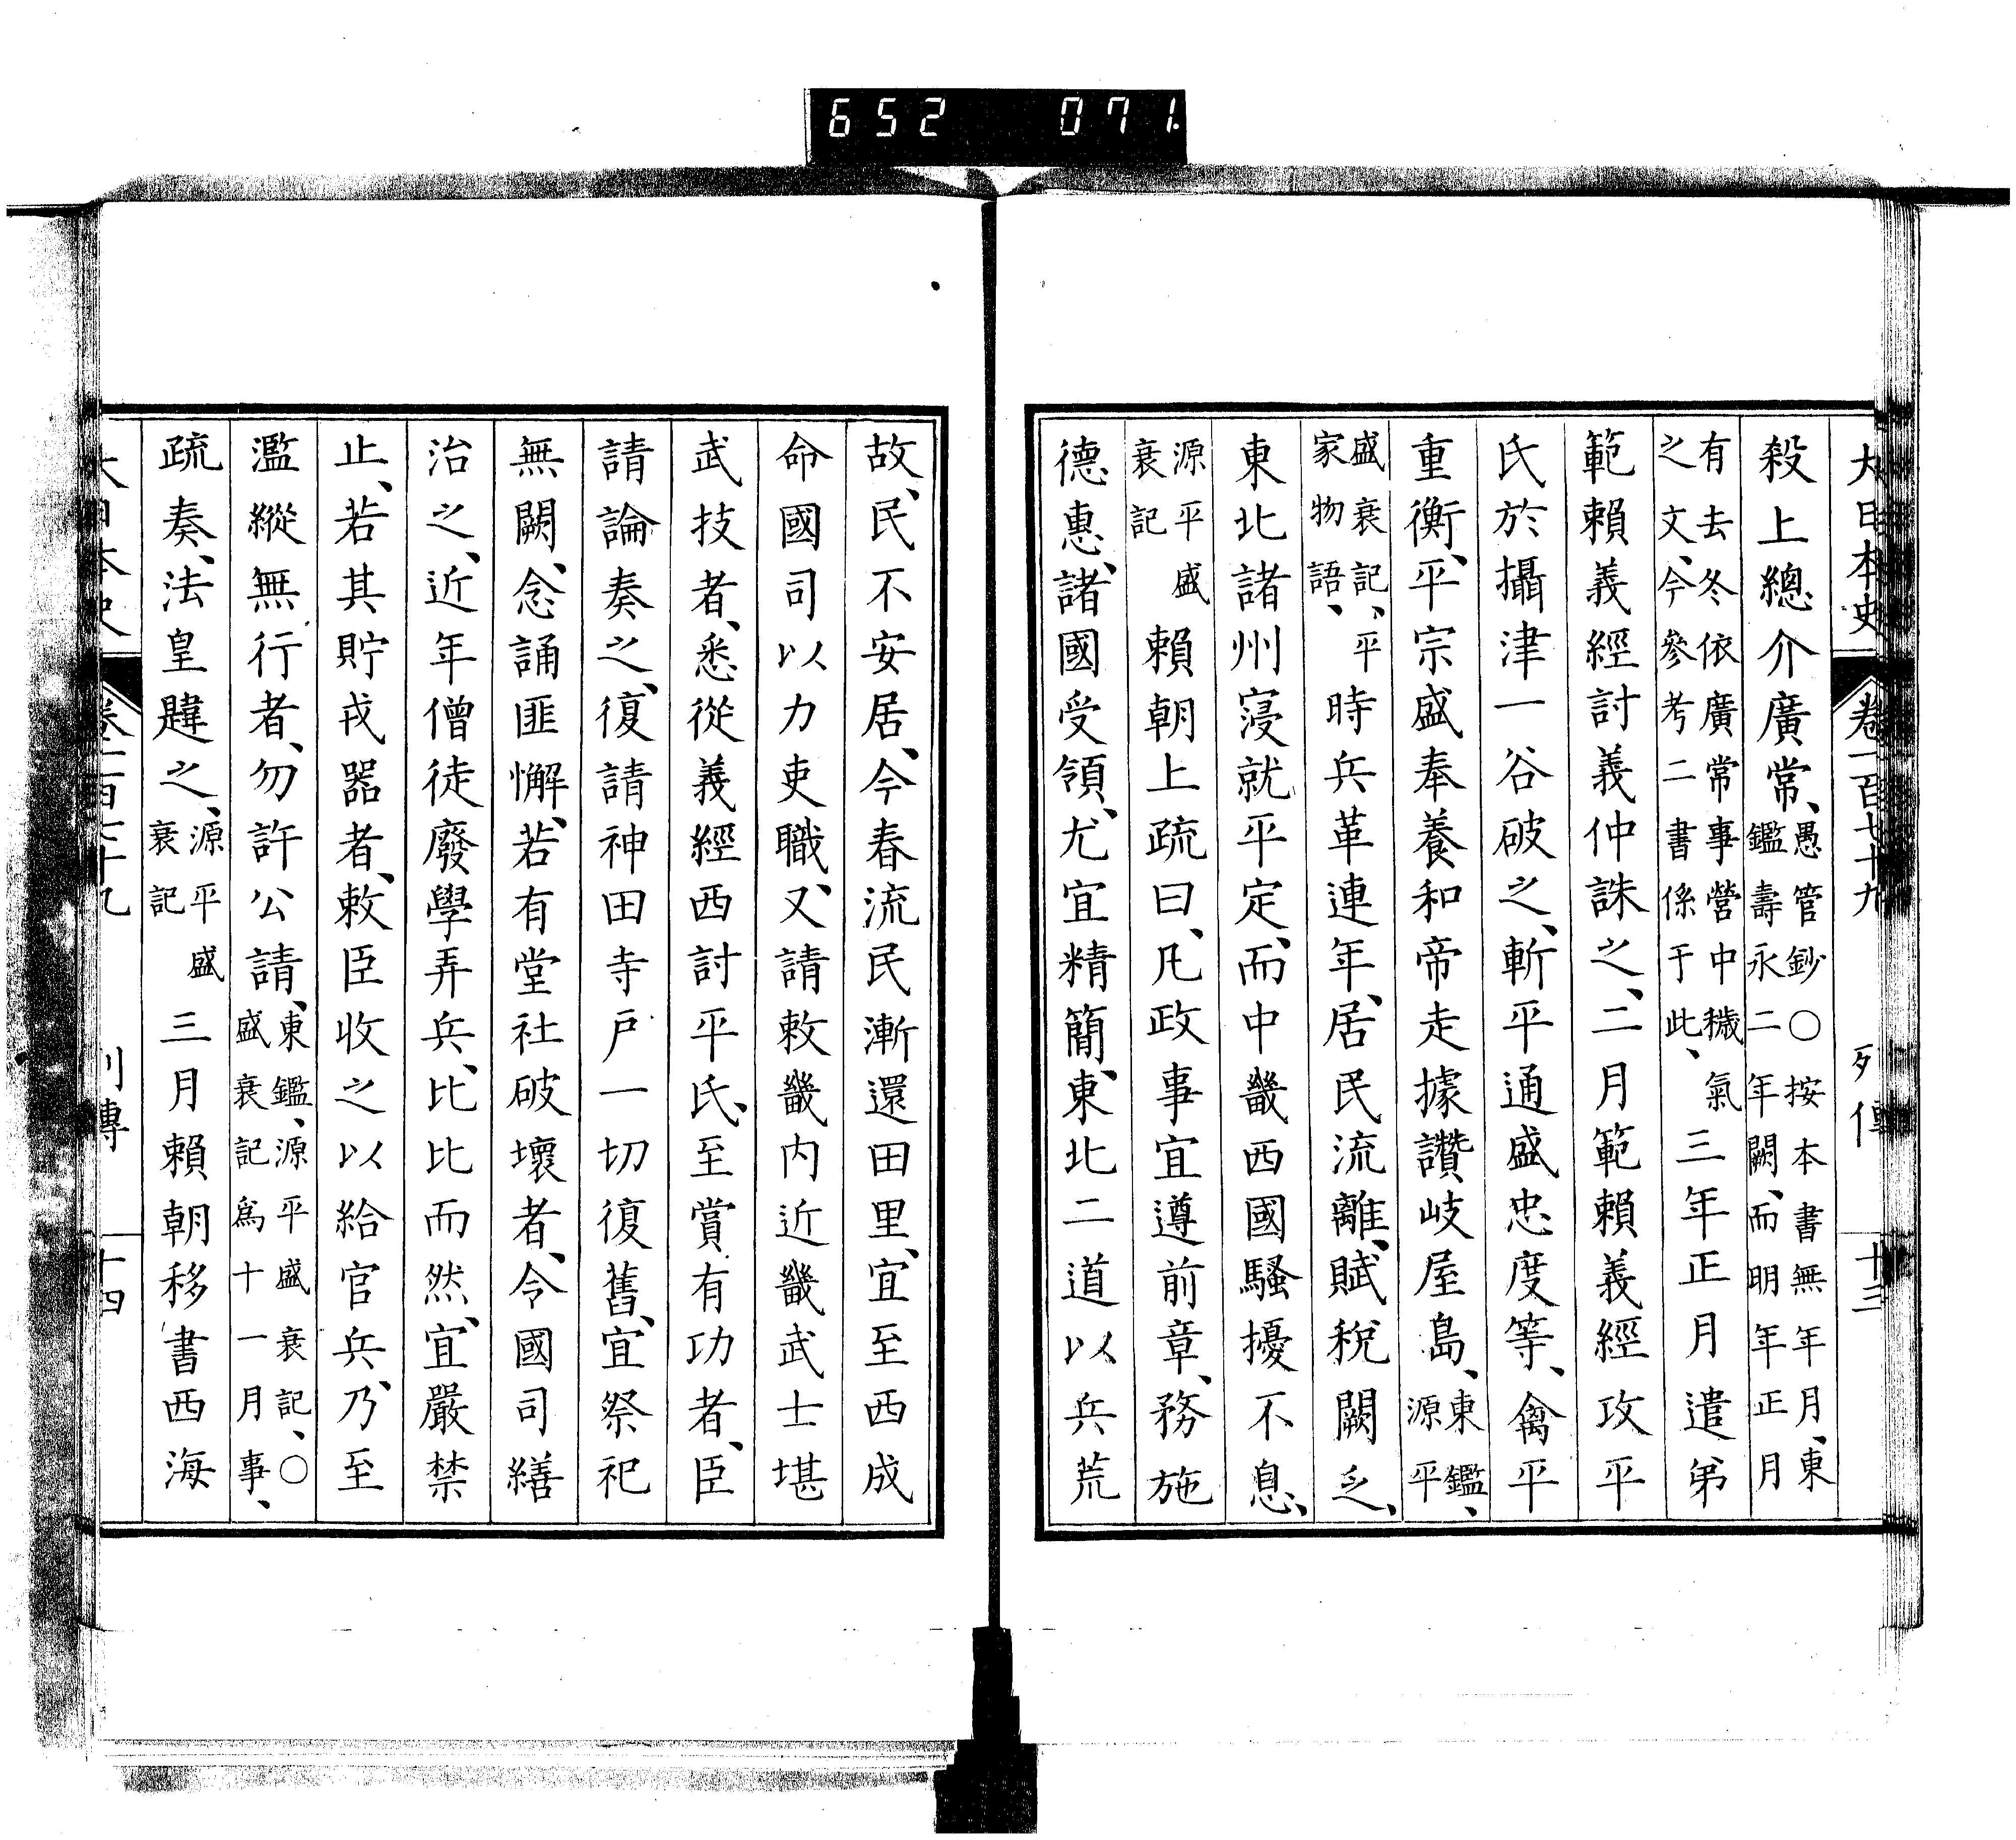 652 071
大日本史 卷一百七十九 列傳 十三
殺上總介廣常、愚管鈔○按本書無年月、東鑑壽永二年闕、而明年正月
有去冬依廣常事營中穢氣之文、今參考二書係于此、三年正月遣弟
範賴義經討義仲誅之、二月範賴義經攻平
氏於攝津一谷破之、斬平通盛忠度等、禽平
重衡、平宗盛奉養和帝走據讚岐屋島、東鑑、源平
盛衰記、平家物語、時兵革連年、居民流離、賦稅闕乏、
東北諸州寖就平定、而中畿西國騷擾不息、
源平盛衰記賴朝上疏曰、凡政事宜遵前章、務施
德惠、諸國受領、尤宜精簡、東北二道以兵荒
故、民不安居、今春流民漸還田里、宜至西成
命國司以力吏職、又請敕畿内近畿武士堪
武技者、悉從義經西討平氏、至賞有功者、臣
請論奏之、復請神田寺戶一切復舊、宜祭祀
無闕、念誦匪懈、若有堂社破壞者、令國司繕
治之、近年僧徒廢學弄兵、比比而然、宜嚴禁
止、若其貯戎器者、敕臣收之以給官兵、乃至
濫縱無行者、勿許公請、東鑑、源平盛衰記、○盛衰記爲十一月事、
疏奏、法皇韙之、源平盛衰記三月賴朝移書西海
大日本史 卷一百七十九 列傳 十四